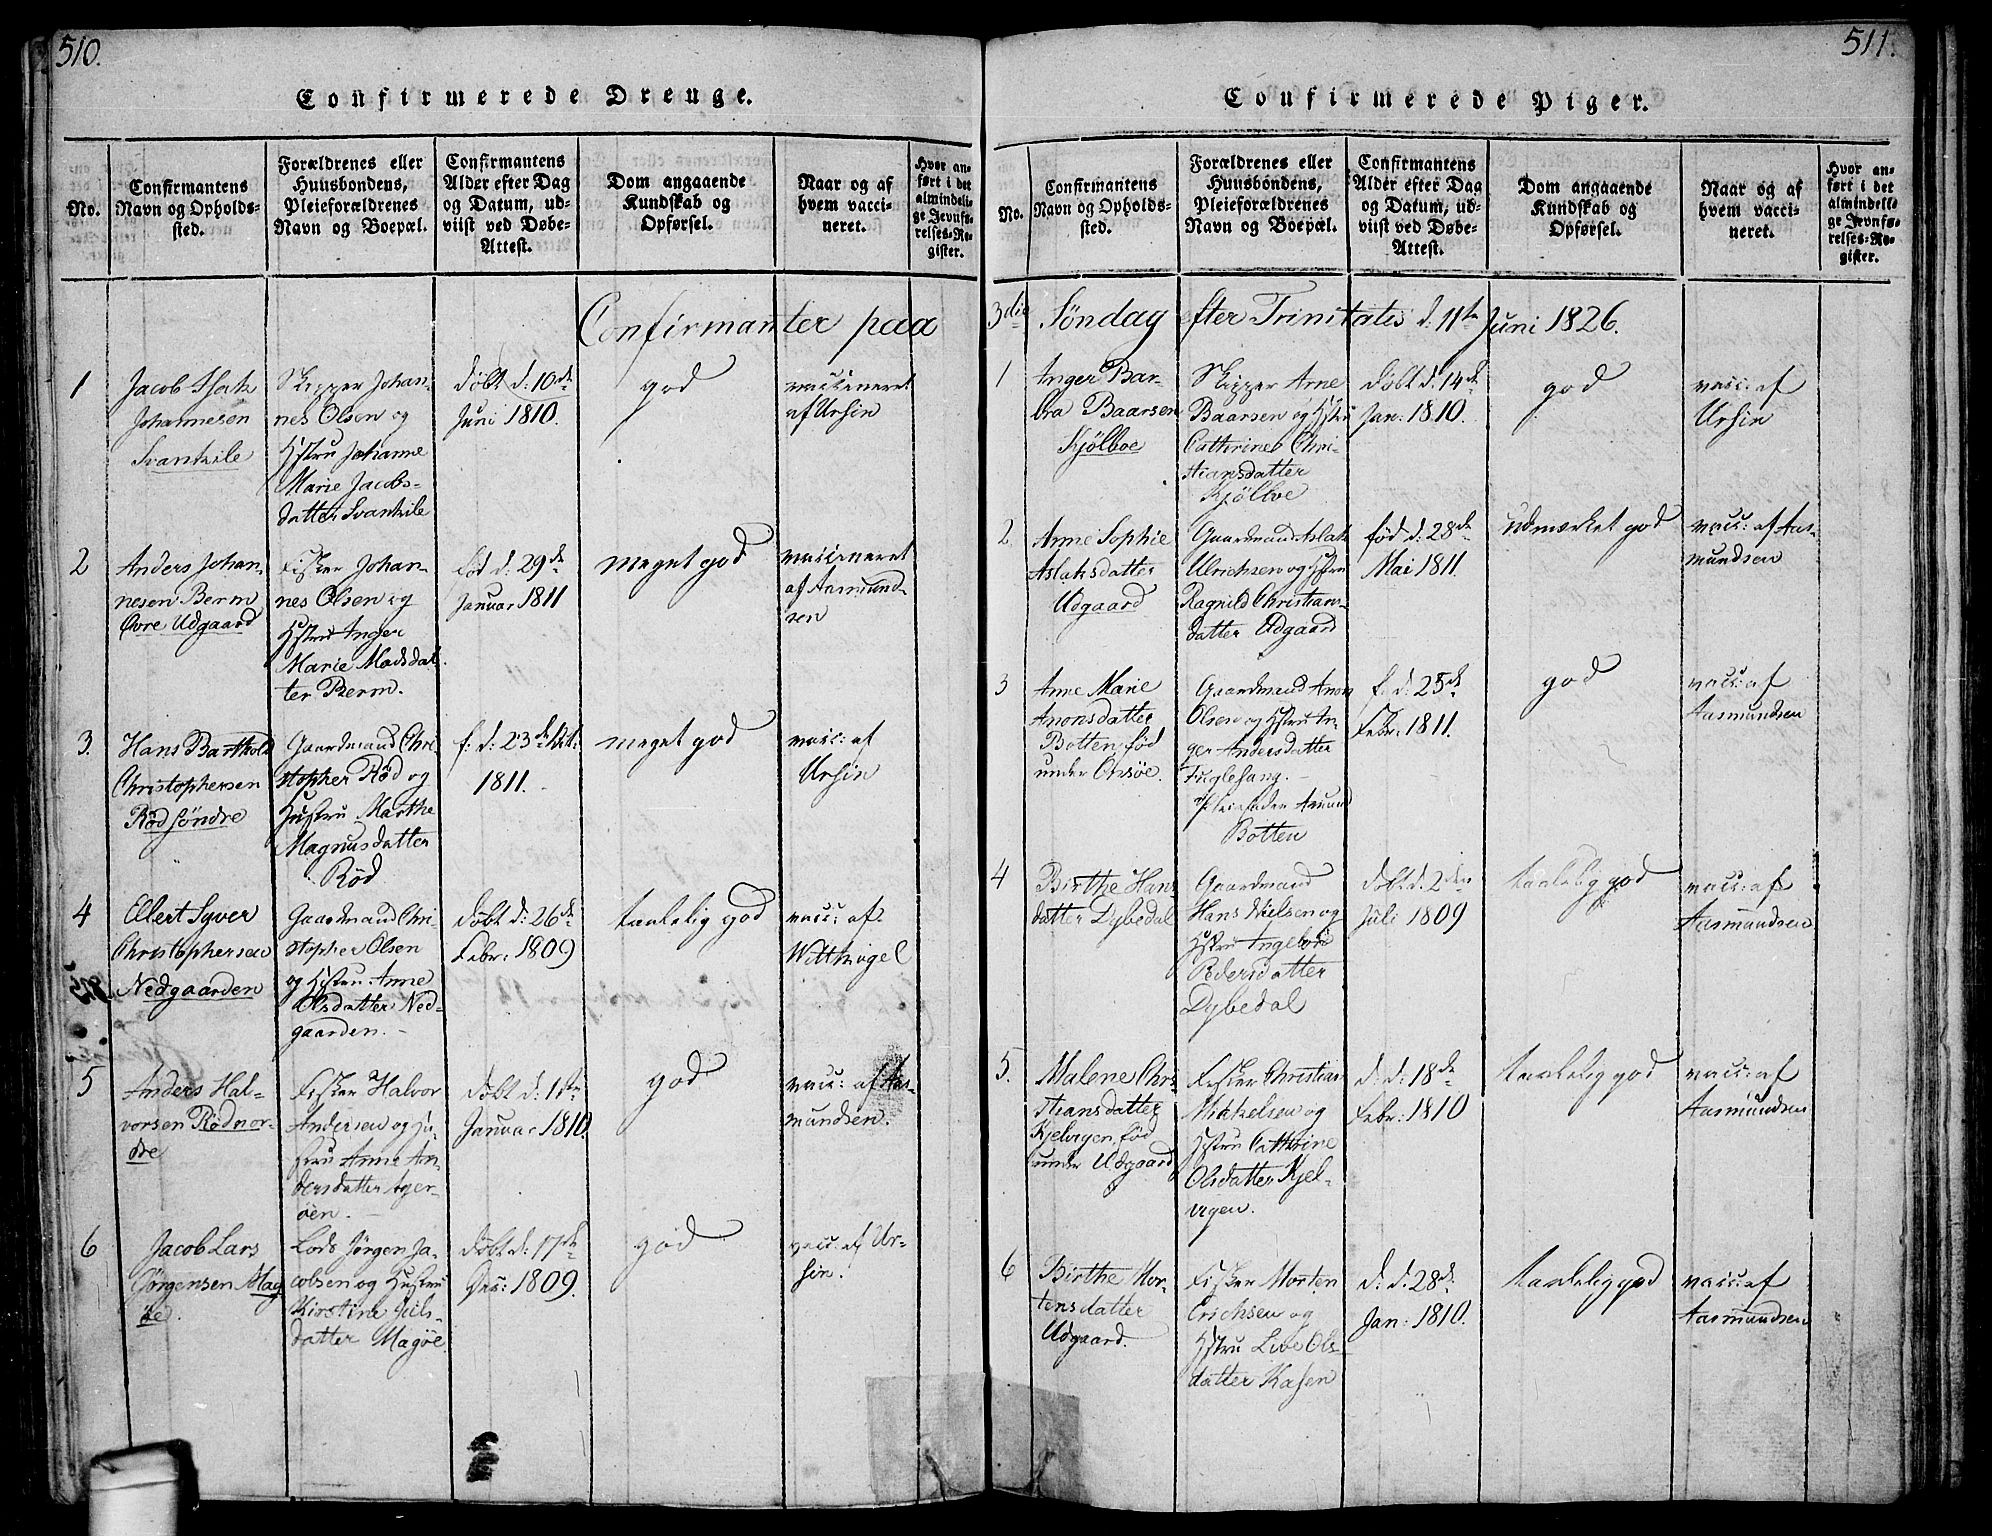 510.
Confirmerede Drenge.
No.
Confirmantens
Navn og Opholds-
sted.
Forældrenes eller
Huusbondens,
Pleieforældrenes
Navn og Boepæl.
Confirmantens
Alder efter Dag
og Datum, ud-
viist ved Døbe-
Attest.
Dom angaaende
Kundskab og
Opførsel.
Naar og af
hvem vacci-
neret.
Hvor an-
ført i det
almindeli-
ge Jevnfø-
relses-Re-
gister.
Confirmanter paa
1
Jacob
Johannesen
Svankile
Skipper Johan-
nes Olsen og
Hstru Johanne
Marie Jacobs-
datter Svankile
døbt d: 10de
Juni 1810.
god
vaccineret
af Ursin
2
Anders Johan-
nesen Berm
Øvre Udgaard
Fisker Johan-
nes Olsen og
Hstru Inger
Marie Madsdat
ter Berm.
fød d: 29de
Januar 1811
meget god
vaccineret
af Aasmund-
sen
3.
Hans Barthold
Christophersen
Rød søndre
Gaardmand Chri
stopher Rød og
Hustru Marthe
Magnusdatter
Rød
f: d: 23de
1811.
meget god
vacc: af
Ursin
4
Ellert Syver
Christophersen
Nedgaarden
Gaardmand Chri-
stopher Olsen
og Hstru Anne
Olsdatter Ned-
gaarden.
døbt d: 26de
Febr: 1809
taalelig god
vacc: af
Wittvogel
5
Anders Hal-
vorsen Rød nor-
dre
Fisker Halvor
Andersen og Hu-
stru Anne An-
dersdatter Ager-
øen.
døbt d: 1ste
Januar 1810.
god
vacc: af Aas-
mundsen.
6
Jacob Lars
Jørgensen Mag
øe.
Lods Jørgen Ja-
cobsen og Hustru
Kirstine Niels-
datter Magøe.
døbt d: 17de
1809.
god
vacc: af Ur-
sin.
511.
Confirmerede Piger.
No.
Confirmantens
Navn og Opholds-
sted.
Forældrenes eller
Huusbondens,
Pleieforældrenes
Navn og Boepæl.
Confirmantens
Alder efter Dag
og Datum, ud-
viist ved Døbe-
Attest.
Dom angaaende
Kundskab og
Opførsel.
Naar og af
hvem vacci-
neret.
Hvor an-
ført i det
almindeli-
ge Jevnfø-
relses-Re-
gister.
3die Søndag efter Trinitatis d: 11te Juni 1826.
1
Inger Bar-
bra Baarsen
Kjølboe
Skipper Arne
Baarsen og Hstru
Cathrine Chri-
stiansdatter
Kjølboe
døbt d: 14de
Jan: 1810.
god
vacc: af
Ursin
2.
Anne Sophie
Aslaksdatter
Udgaard
Gaardmand Aslak
Ulrichsen og Hstru
Ragnild Christians-
datter Udgaard
fød d: 28de
Mai 1811.
udmærket god
vacc: af Aas-
mundsen
3
Anne Marie
Anonsdatter
Botten, fød
under Onsøe.
Gaardmand Anon
Olsen og Hstru In-
ger Andersdatter
Fuglesang.
Pleiefader Amund
Botten
f. d: 25de
Febr: 1811.
god
vacc: af
Aasmundsen
4
Birthe Hans
datter Dybedal
Gaardmand
Hans Nielsen og
Hstru Ingebor
Pedersdatter
Dybedal
døbt d. 2den
Juli 1809
taalelig god
vacc: af
Aasmundsen
5.
Malene Chri
stiansdatter
Kjelvigen, fød
under Udgaard
Fisker Christian
Mikkelsen og
Hstru Cathrine
Olsdatter Kjel-
vigen.
d: d: 18de
Febr: 1810
taalelig god
vacc: af
Aasmundsen
6
Birthe Mor-
tensdatter
Udgaard.
Fisker Morten
Erichsen og
Hstru Live Ols
datter Kasen
d: d. 28de
Jan: 1810.
taalelig god
vacc: af
Aasmundsen